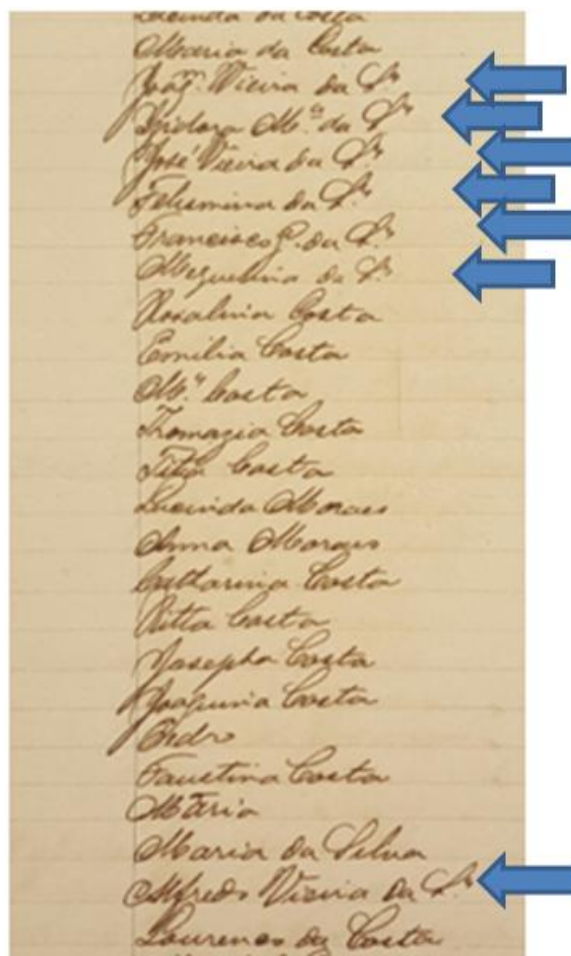 Lucinda da Costa
Maria da Costa
Joaqm. Vieira da Sa
Izidora Ma. da Sa
José Vieira da Sa
Felismina da Sa
Francisco P. da Sa
Miquelina da Sa
Rosalina Costa
Emilia Costa
Ma. Costa
Thomazia Costa
Costa
Lucinda Moraes
Anna Moraes
Catharina Costa
Ritta Costa
Josepha Costa
Joaquina Costa
Pedro
Faustina Costa
Maria
Maria da Silva
Alfredo Vieira da Sa
Lourenço da Costa